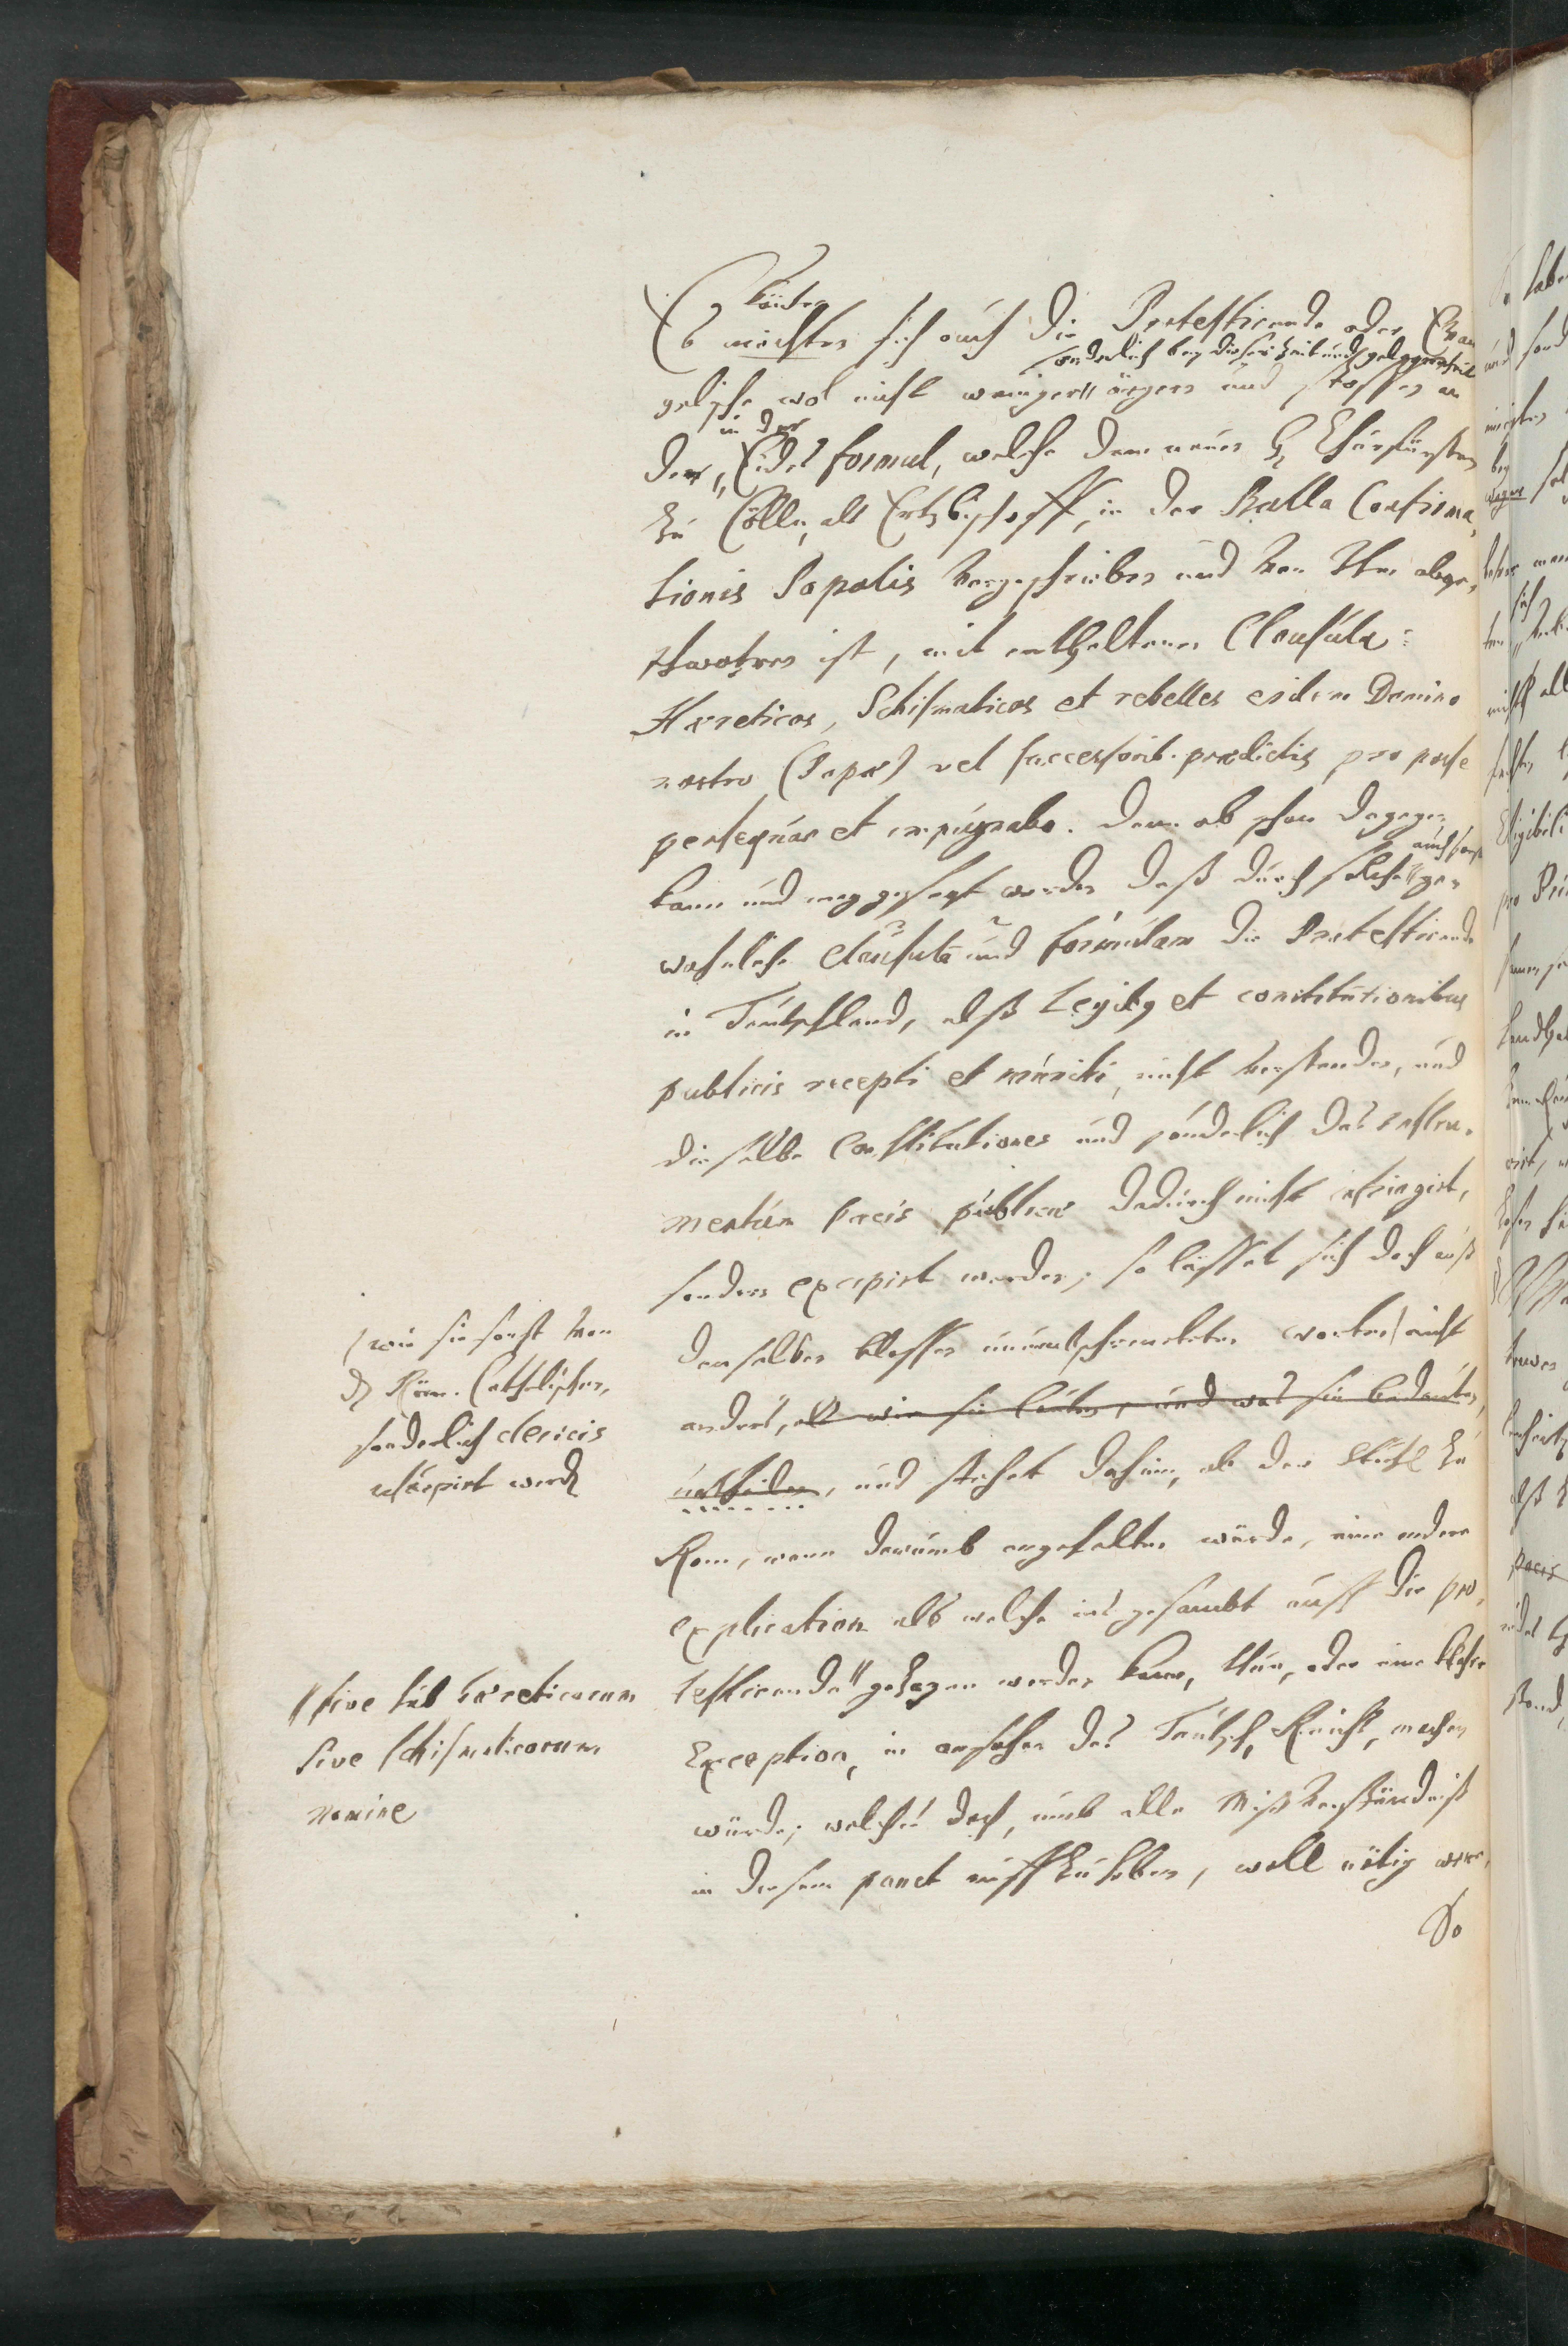 könten
Es möchten sich auch die Protestirende oder Evan
sonderlich bey dieser Zeit und gelegenheit
gelische wol nicht weniger ärgern und stossen an
in der
der Eides formul, welche dem neuen H. Churfürsten
zu Cölln, als Ertzbischoff, in der Bulla Confirma,
tionis Papalis vorgeschrieben und von Ihm abge,
schworen ist, mit enthaltener Clausula:
Hæreticos, Schismaticos et rebelles eidem Domino
nostro (Papæ) vel successorib. prædictis pro posse
persequar et impugnabo. Dann ob schon dagegen
auch sonst
kann und mag gesagt werden daß durch solche ge,
wohnliche clausulam und formulam die Protestirende
in Teutschland, alß Legibus et constitutionibus
publicis recepti et muniti, nicht verstanden, und
dieselbe Constitutiones und sonderlich das Instru,
mentum Pacis publicæ dadurch nicht infringirt,
sondern excipirt werden; so lässet sich doch auß
denselben blossen unumbschrenckten worten nicht
anders, als wie sie lauten, und was sie bedeuten,
urtheilen, und stehet dahin, ob der Stuhl zu
Rom, wann darumb angehalten würde, eine andere
explication als welche ins gesambt auff die pro,
testirende gezogen werden kann, thun, oder eine klahre
Exception, in ansehen des Teutsch. Reichs, machen
würde; welches doch, umb alle Mißverständniß
in diesem punct auffzuheben, woll nötig were,
So
wie sie sonst von
d. Röm. Catholischen,
sonderlich clericis
usurpirt werden
sive sub hæreticorum
sive schismaticorum
nomine